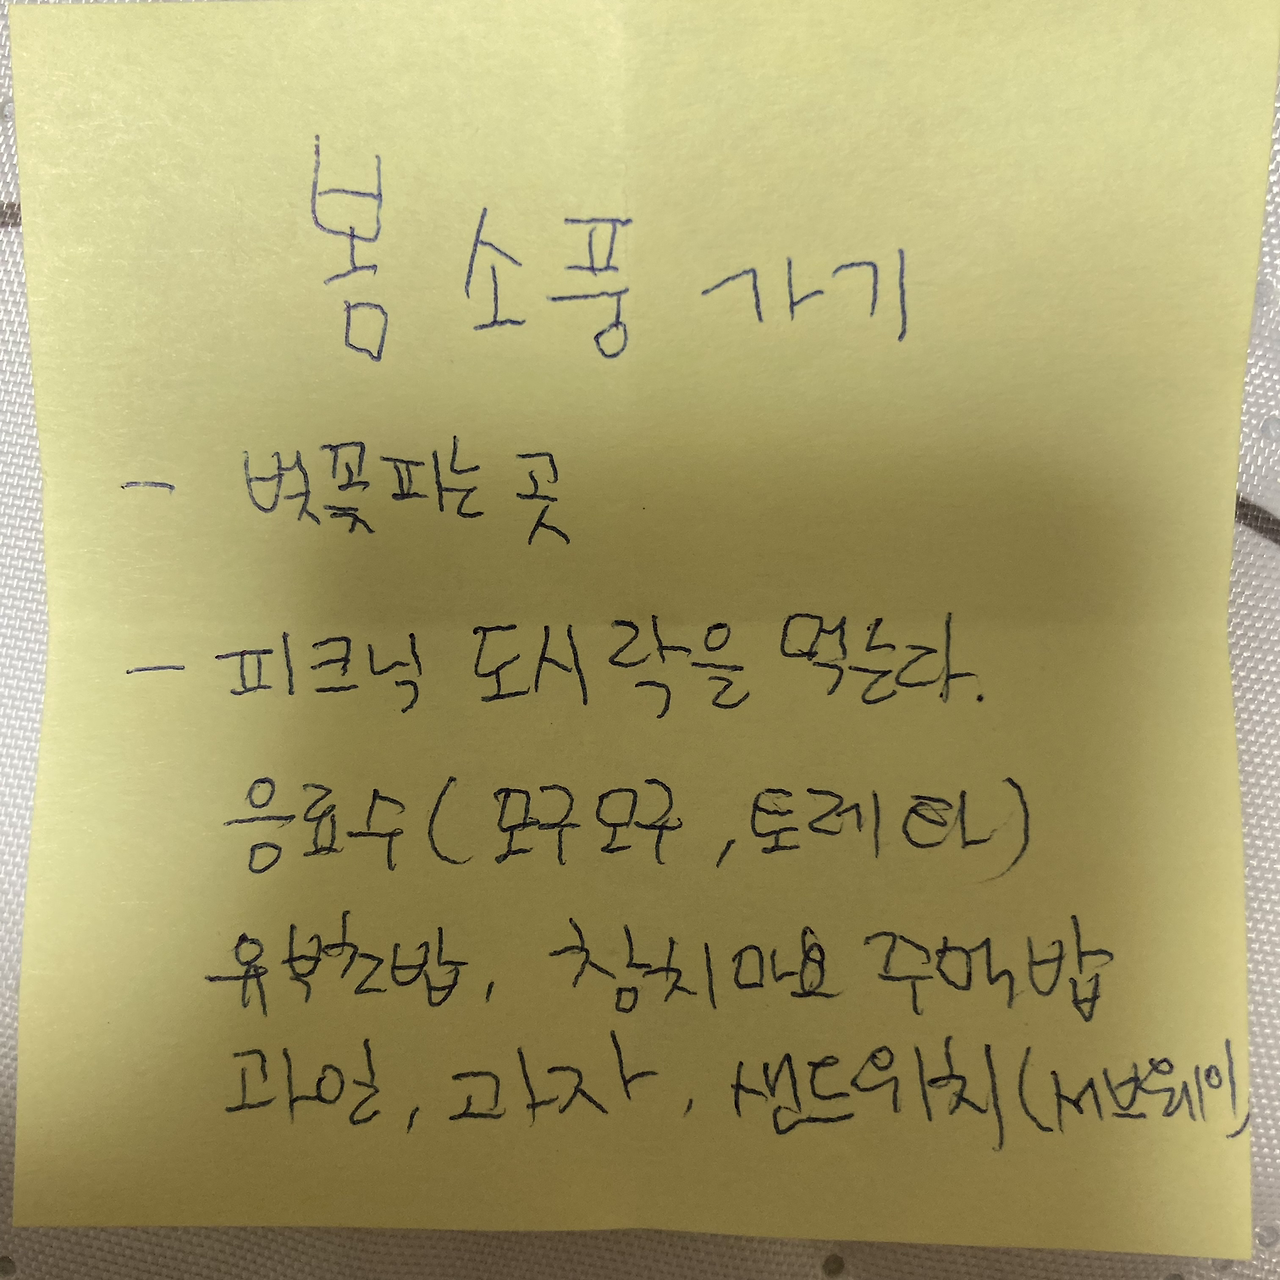 봄 소풍 가기
- 벚꽃피는 곳
- 피크닉 도시락을 먹는다.
음료수(모구모구, 토레타)
유부초밥, 참치마요 주먹밥
과일, 과자, 샌드위치(서브웨이)